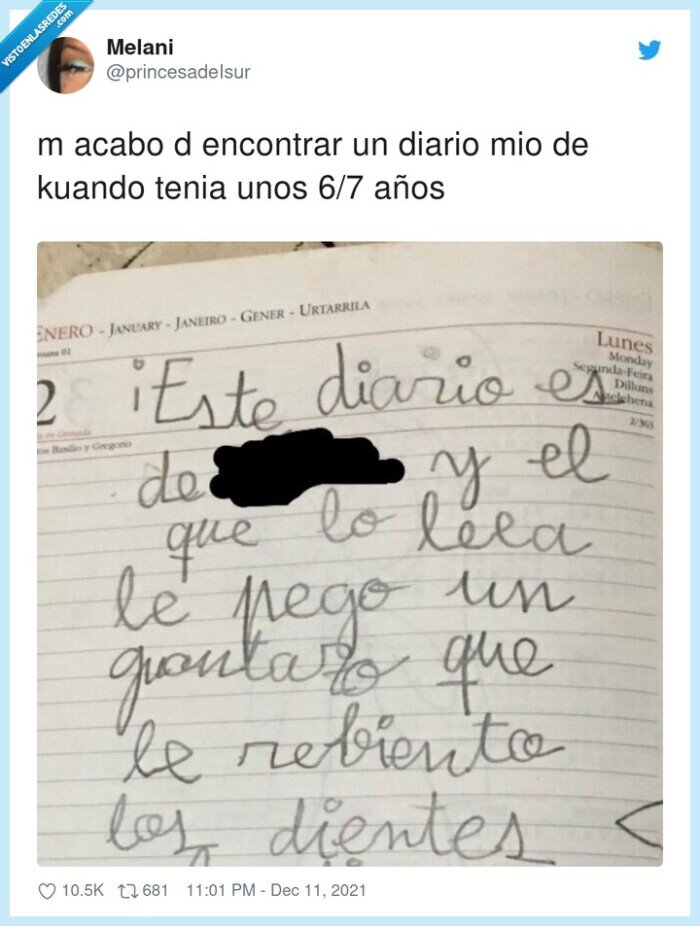 VISTOENLASREDES
.com
Melani
@princesadelsur
m acabo d encontrar un diario mio de
kuando tenia unos 6/7 años
ENERO - JANUARY - JANEIRO - GENER - URTARRILA
Semana 01
Lunes
Monday
Segunda-Feira
Dilluns
Astelehena
2/363
2
en Granada
tos Basilio y Gregorio
¡Este diario es
de y el
que lo leea
le pego un
guantazo que
le rebiento
los dientes
10.5K 681 11:01 PM - Dec 11, 2021